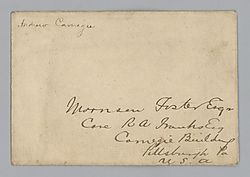 Andrew Carnegie
Morrison Foster Esqr
Care R A Franks Esq
Carnegie Building
Pittsburgh Pa
U. S. A